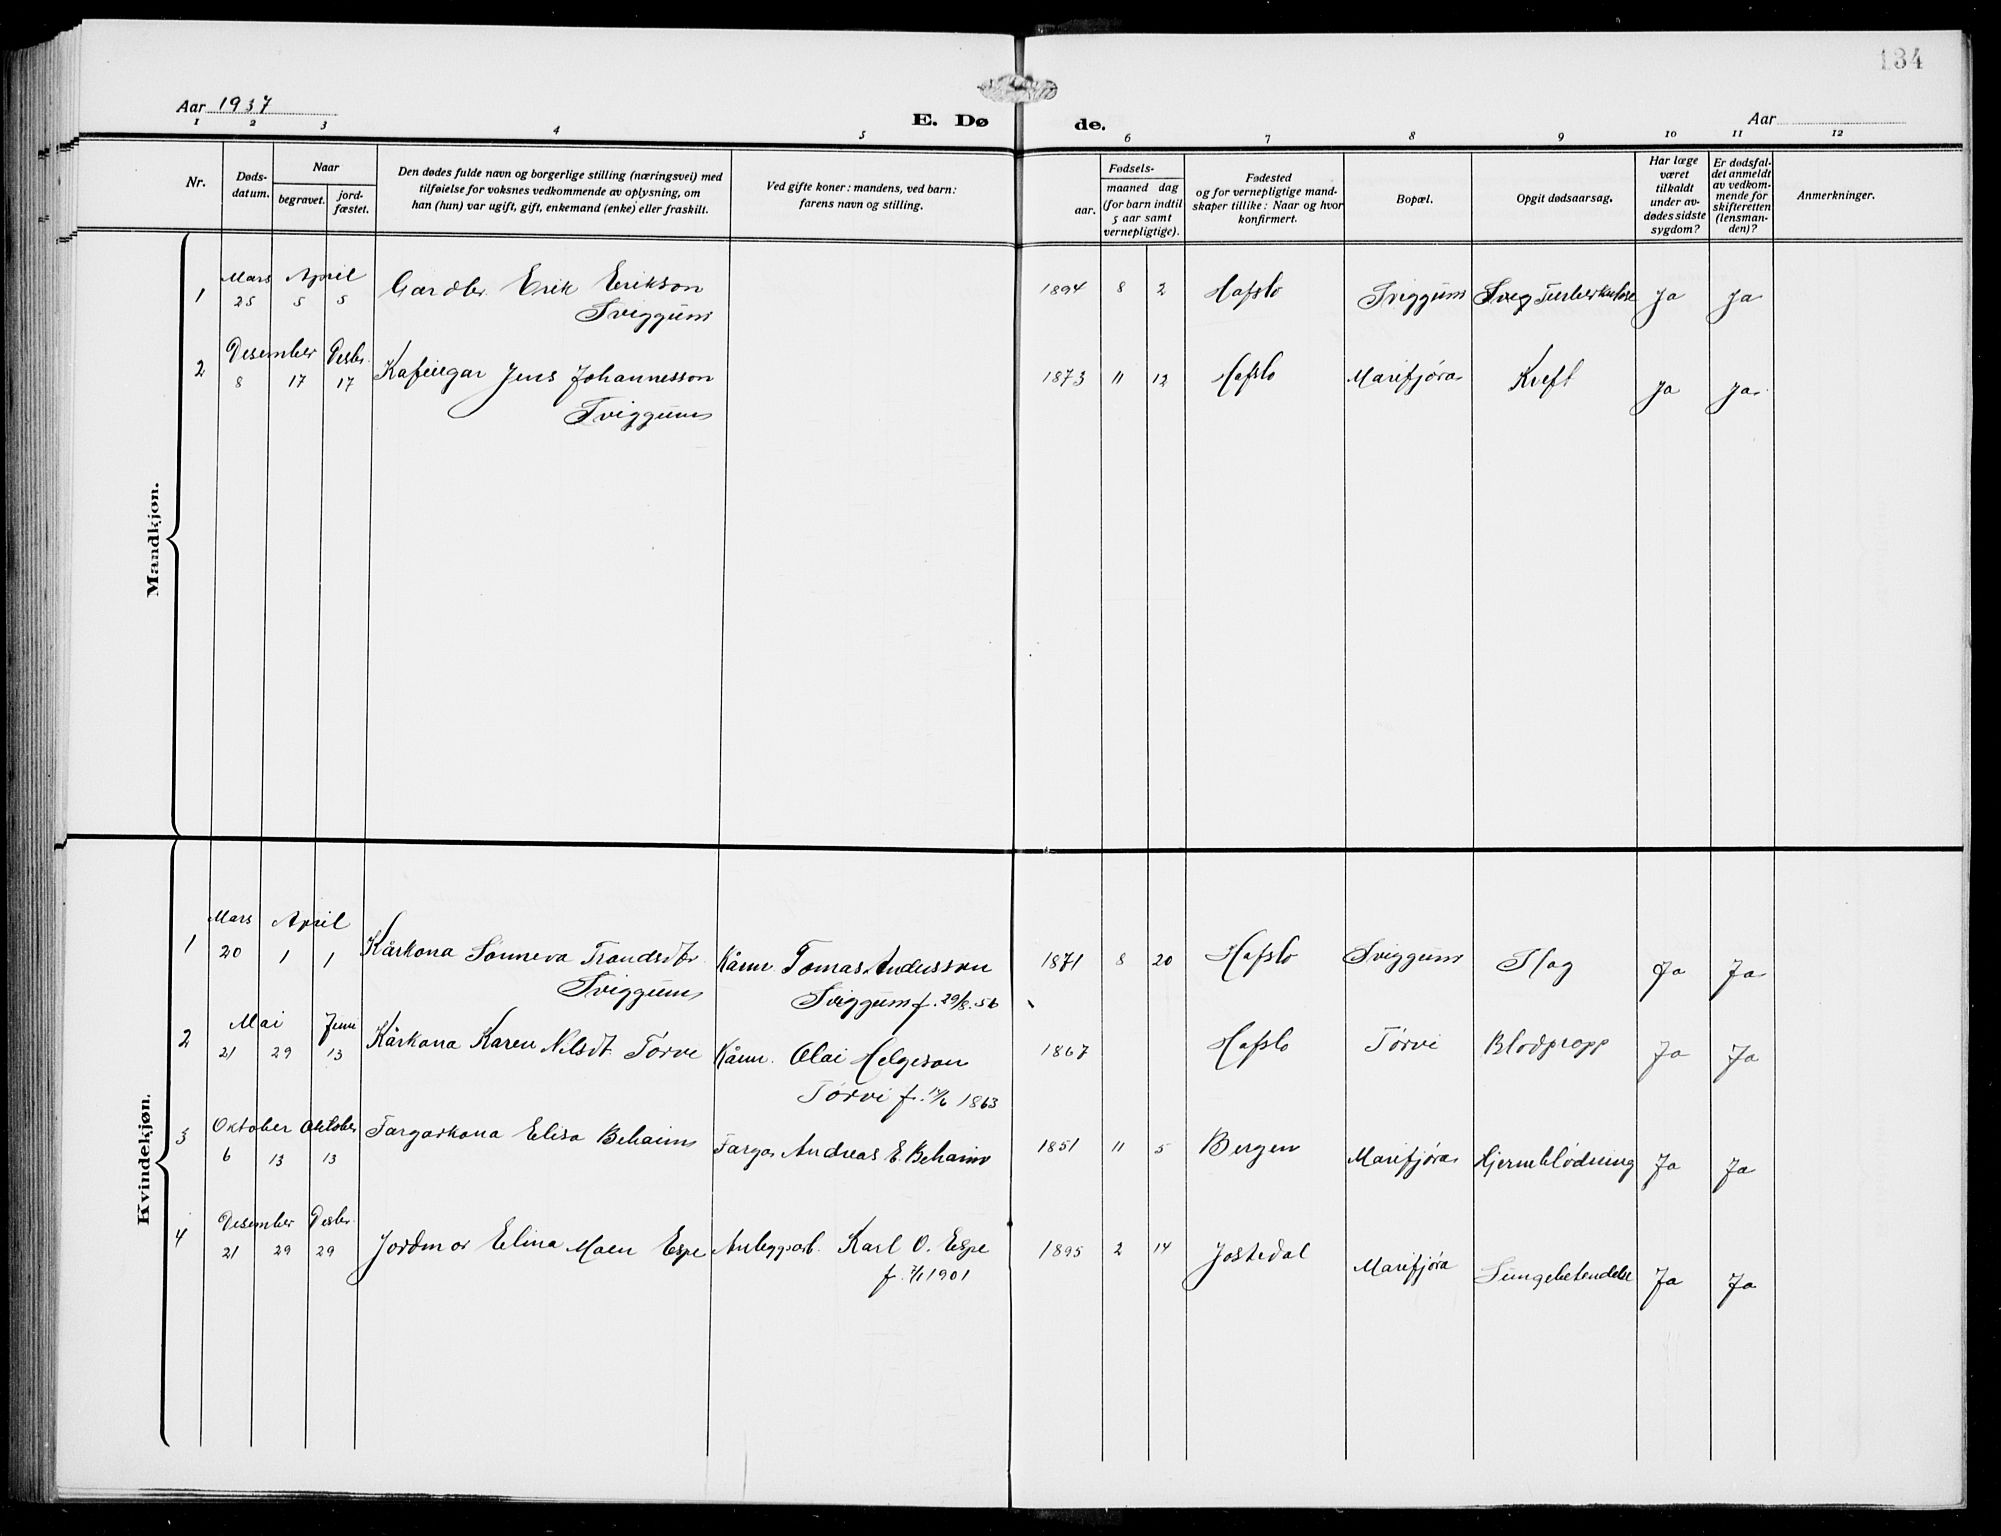 134
Aar 1937
E. Døde.
Aar
1 2 3 4 5 6 7 8 9 10 11 12
Nr.
Døds-
datum.
Naar
begravet.
jord-
fæstet.
Den dødes fulde navn og borgerlige stilling (næringsvei) med
tilføielse for voksnes vedkommende av oplysning, om
han (hun) var ugift, gift, enkemand (enke) eller fraskilt.
Ved gifte koner: mandens, ved barn:
farens navn og stilling.
Fødsels-
aar.
maaned dag
(for barn indtil
5 aar samt
vernepligtige).
Fødested
og for vernepligtige mand-
skaper tillike: Naar og hvor
konfirmert.
Bopæl.
Opgit dødsaarsag.
Har læge
været
tilkaldt
under av-
dødes sidste
sygdom?
Er dødsfal-
det anmeldt
av vedkom-
mende for
skifteretten
(lensman-
den)?
Anmerkninger.
Maandkjøn.
Mars April
1 25 5 5 Gardbr. Erik Erikson 1894 8 2 Hafslo Tviggum Tuberkulose Ja Ja
Tviggum
Desember Desbr.
2 8 17 17 Kafeeigar Jens Johannesson 1873 11 12 Hafslo Marifjøra Kreft Ja Ja
Tviggum
Kvindekjøn.
Mars April
1 20 1 1 Kårkona Sønneva Trondsdtr. Kårm. Tomas Andersson 1871 8 20 Hafslo Tviggum Slag Ja Ja
Tviggum Tviggum f. 29/8.56
Mai Juni
2 21 29 13 Kårkona Karen Nilsdt. Tørvi Kårm. Olai Helgeson 1867 Hafslo Tørvi Blodpropp Ja Ja
Tørvi f. 1863
Oktober Oktober
3 6 13 13 Fargarkona Elisa Behaim Fargar Andreas E. Behaim 1851 11 5 Bergen Marifjøra Hjerneblødning Ja Ja
Desember Desbr.
4 21 29 29 Jordmor Elina Moen Espe Anleggsarb. Karl O. Espe 1895 2 14 Jostedal Marifjøra Lungebetendelse Ja Ja
f. 1901